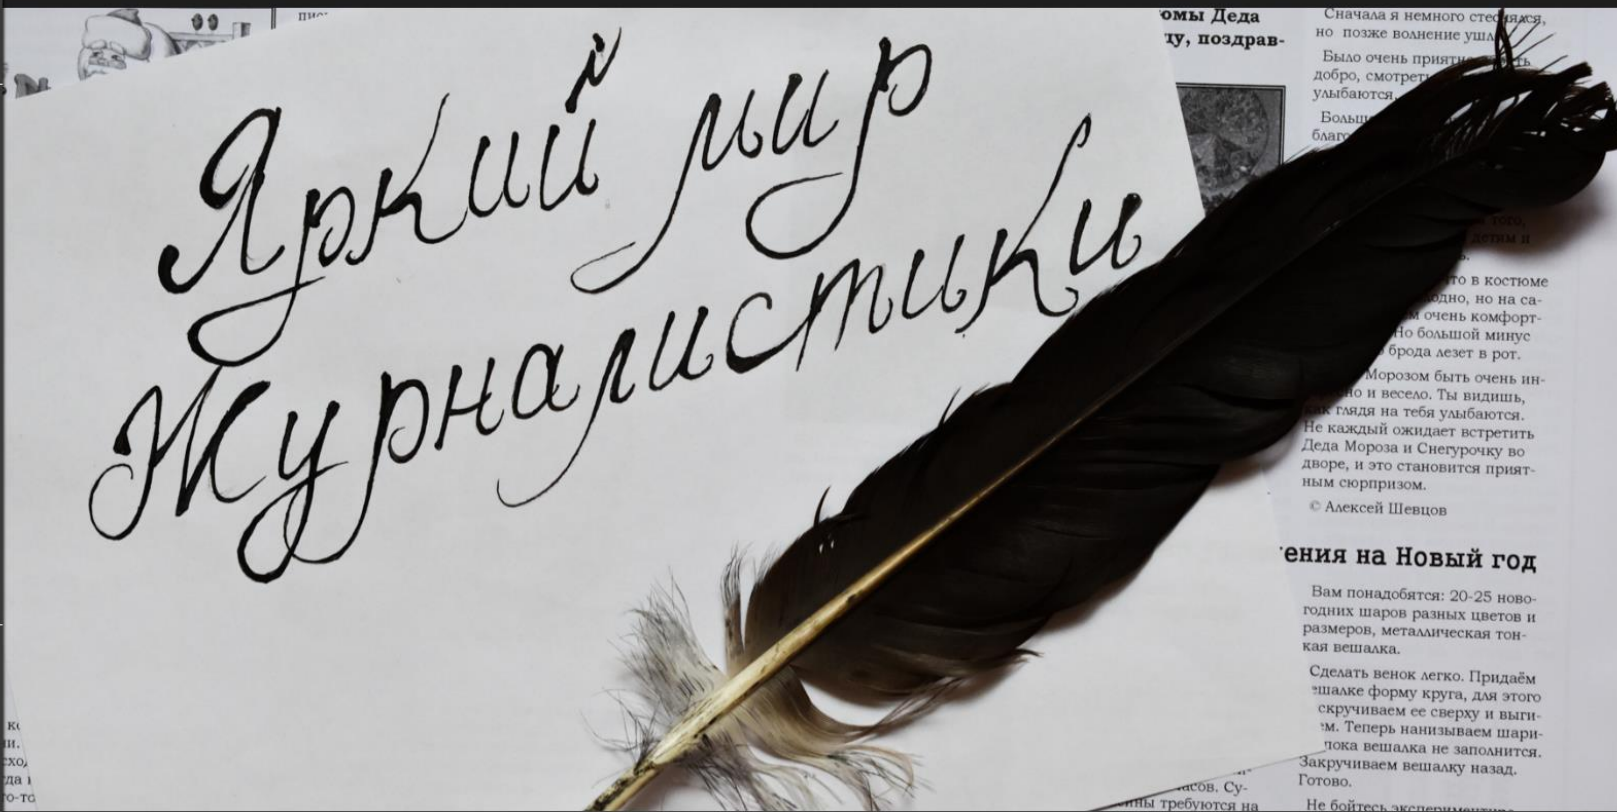 Яркий мир
Журналистики
омы Деда
поздрав-
Сначала я немного стеснялся,
но позже волнение ушл
Было очень приятно
добро, смотрет
улыбаются.
того,
детям и
то в костюме
но на са-
очень комфорт-
Но большой минус
брода лезет в рот.
Морозом быть очень ин-
но и весело. Ты видишь,
как глядя на тебя улыбаются.
Не каждый ожидает встретить
Деда Мороза и Снегурочку во
дворе, и это становится прият-
ным сюрпризом.
© Алексей Шевцов
ения на Новый год
Вам понадобятся: 20-25 ново-
годних шаров разных цветов и
размеров, металлическая тон-
кая вешалка.
Сделать венок легко. Придаём
ешалке форму круга, для этого
скручиваем ее сверху и выги-
ем. Теперь нанизываем шари-
пока вешалка не заполнится.
Закручиваем вешалку назад.
Готово.
Не бойтесь
часов. Су-
требуются на